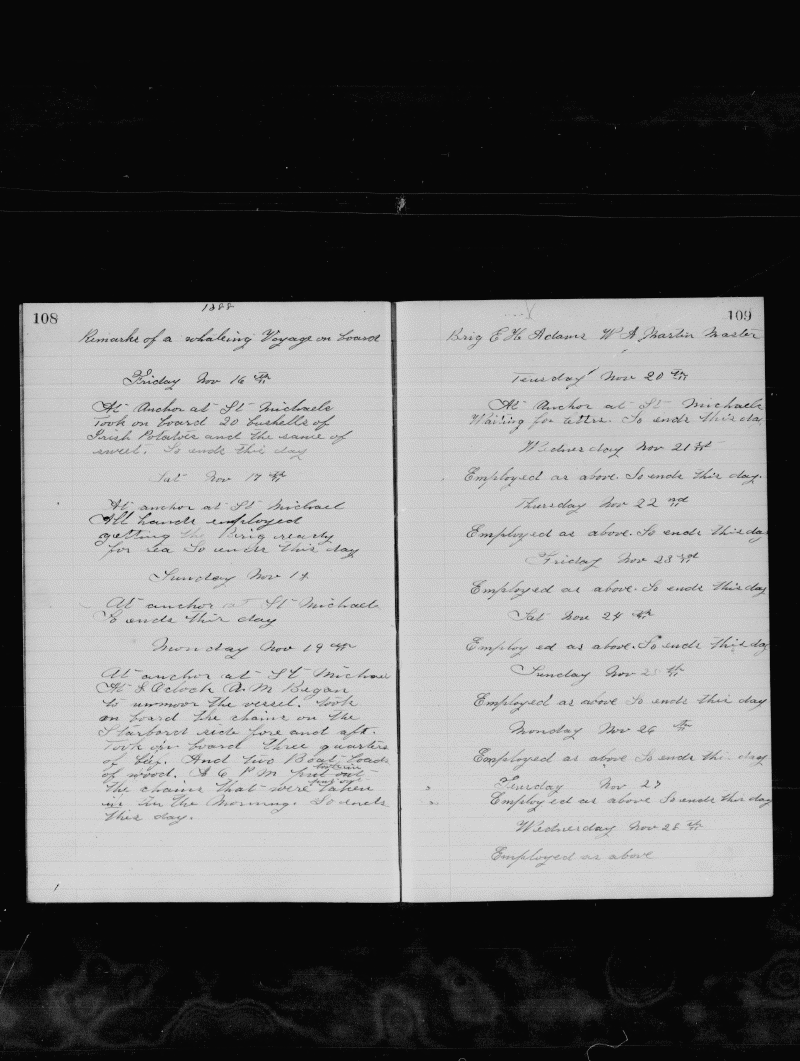 108
1888
Remarks of a whaleing Voyage on board
Friday Nov 16th
At Anchor at St Michaels
Took on board 20 bushells of
Irish Potatoes and the same of
sweet. So ends this day
Sat Nov 17th
At anchor at St Michael
All hands employed
getting the Brig ready
for sea So ends this day
Sunday Nov 18
At anchor at St Michaels
So ends this day
Monday Nov 19th
At anchor at St Michael
At Oclock A. M Began
to unmoor the vessel. took
on board the chains on the
Starbord side fore and aft.
Took on board three quarters
of And two Boat loads
of wood. At 6 P M put out
the chains that were taken
in in the Morning. So ends
this day.
109
Brig E H Adams W A Martin Master
Teusday Nov 20th
At Anchor at St Michaels
Waiting for So ends this day
Wednesday Nov 21st
Employed as above. So ends this day.
Thursday Nov 22nd
Employed as above. So ends this day
Friday Nov 23rd
Employed as above. So ends this day
Sat Nov 24th
Employed as above. So ends this day
Sunday Nov 25th
Employed as above So ends this day
Monday Nov 26th
Employed as above So ends this day
Teusday Nov 27
Employed as above So ends this day
Wednesday Nov 28th
Employed as above